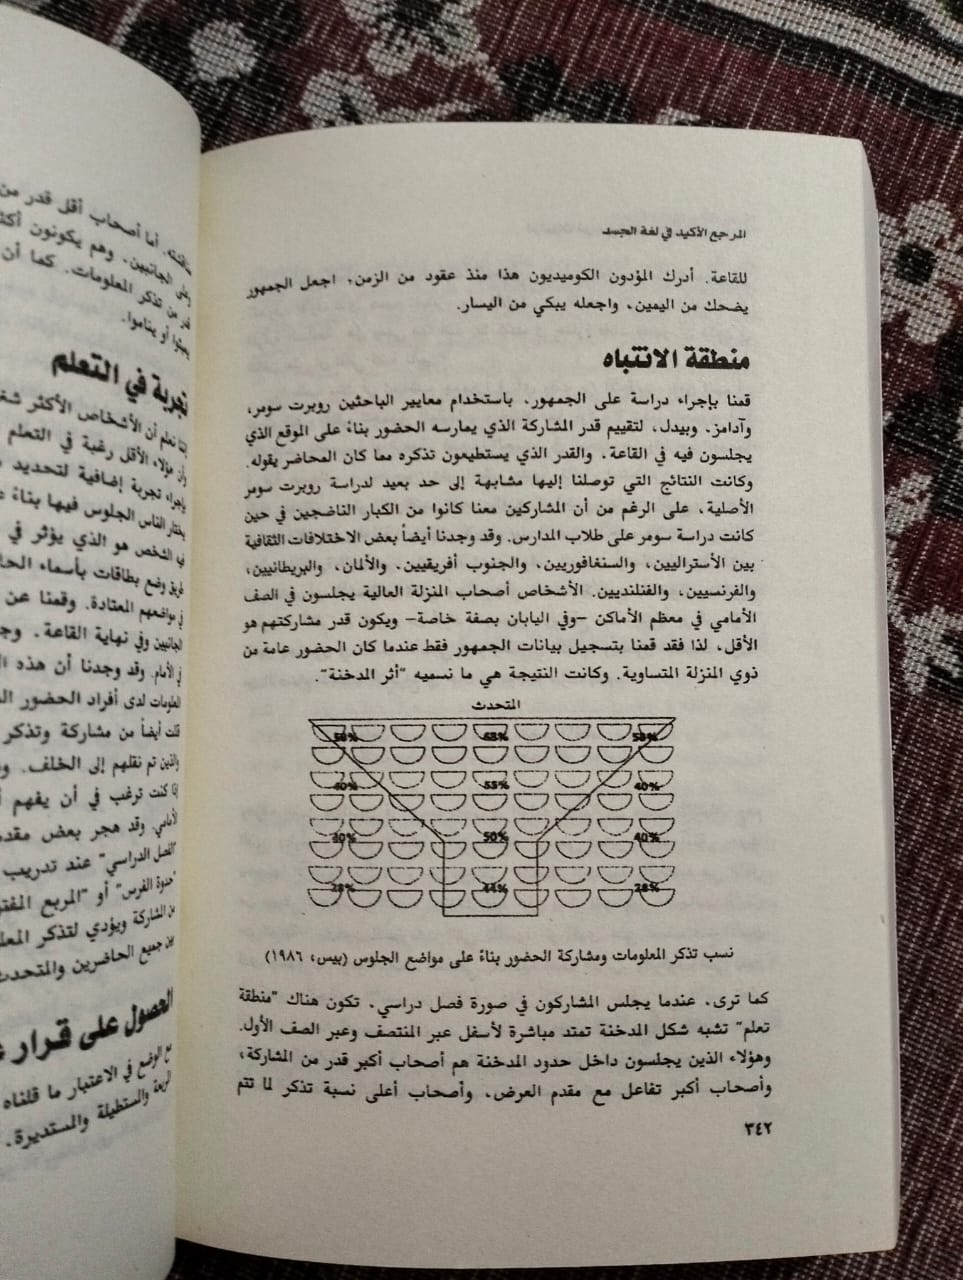 المرجع الأكيد في لغة الجسد
للقاعة. أدرك المؤدون الكوميديون هذا منذ عقود من الزمن، اجعل الجمهور
يضحك من اليمين، واجعله يبكي من اليسار.
منطقة الانتباه
قمنا بإجراء دراسة على الجمهور، باستخدام معايير الباحثين روبرت سومر،
وآدامز، وبيدل، لتقييم قدر المشاركة الذي يمارسه الحضور بناءً على الموقع الذي
يجلسون فيه في القاعة، والقدر الذي يستطيعون تذكره مما كان المحاضر يقوله.
وكانت النتائج التي توصلنا إليها مشابهة إلى حد بعيد لدراسة روبرت سومر
الأصلية، على الرغم من أن المشاركين معنا كانوا من الكبار الناضجين في حين
كانت دراسة سومر على طلاب المدارس. وقد وجدنا أيضاً بعض الاختلافات الثقافية
بين الأستراليين، والسنغافوريين، والجنوب أفريقيين، والألمان، والبريطانيين،
والفرنسيين، والفنلنديين. الأشخاص أصحاب المنزلة العالية يجلسون في الصف
الأمامي في معظم الأماكن -وفي اليابان بصفة خاصة- ويكون قدر مشاركتهم هو
الأقل، لذا فقد قمنا بتسجيل بيانات الجمهور فقط عندما كان الحضور عامة من
ذوي المنزلة المتساوية. وكانت النتيجة هي ما نسميه "أثر المدخنة".
المتحدث
40% 55% 40%
30% 50% 40%
28% 44% 28%
نسب تذكر المعلومات ومشاركة الحضور بناءً على مواضع الجلوس (بيس، ١٩٨٦)
كما ترى، عندما يجلس المشاركون في صورة فصل دراسي، تكون هناك "منطقة
تعلم" تشبه شكل المدخنة تمتد مباشرة لأسفل عبر المنتصف وعبر الصف الأول.
وهؤلاء الذين يجلسون داخل حدود المدخنة هم أصحاب أكبر قدر من المشاركة،
وأصحاب أكبر تفاعل مع مقدم العرض، وأصحاب أعلى نسبة تذكر لما تتم
٣٤٢
أما أصحاب أقل قدر من
الجانبين، وهم يكونون
من تذكر المعلومات. كما أن
أو يناموا.
تجربة في التعلم
نعلم أن الأشخاص الأكثر
هؤلاء الأقل رغبة في التعلم
بإجراء تجربة إضافية لتحديد
يختار الناس الجلوس فيها بناءً
الشخص هو الذي يؤثر في
طريق وضع بطاقات بأسماء
في مواضعهم المعتادة. وقمنا عن
الجانبين وفي نهاية القاعة.
في الأمام. وقد وجدنا أن هذه
المعلومات لدى أفراد الحضور
قلت أيضاً من مشاركة وتذكر
والذين تم نقلهم إلى الخلف.
إذا كنت ترغب في أن يفهم
الأمامي. وقد هجر بعض
"الفصل الدراسي" عند تدريب
"حدوة الفرس" أو "المربع
من المشاركة ويؤدي لتذكر
بين جميع الحاضرين والمتحدث
الحصول على قرار
مع الوضع في الاعتبار ما قلناه
المربعة والمستطيلة والمستديرة.